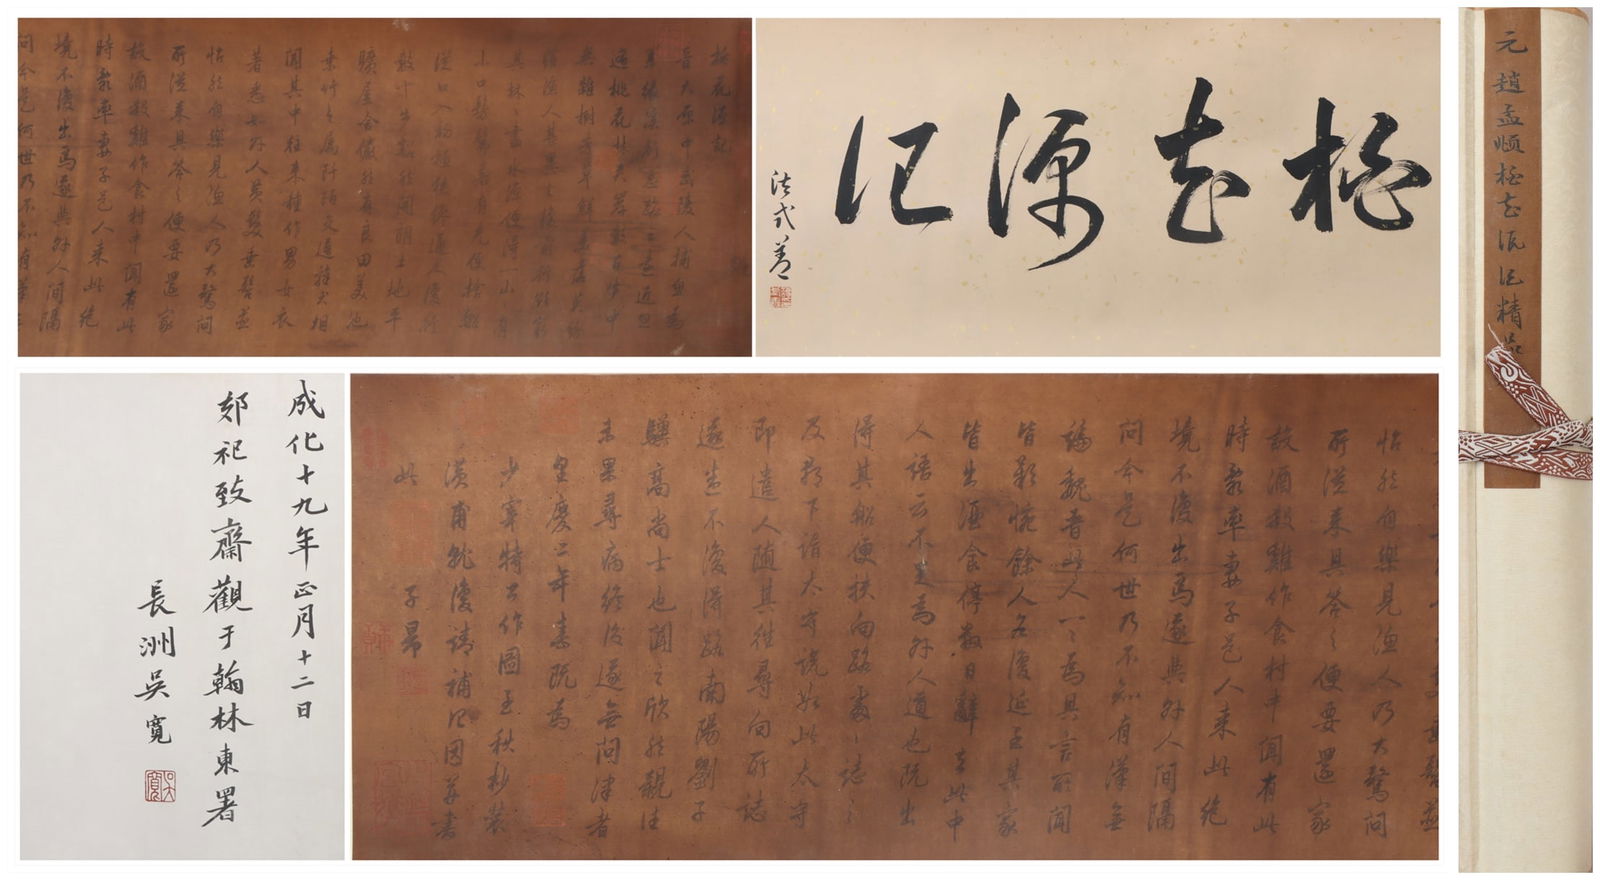 元趙孟頫桃花源記精品
桃花源記
法式善
桃花源記
晉太原中武陵人捕魚為
業緣溪行忘路之遠近忽
逢桃花林夾岸數百步中
無雜樹芳草鮮美落英繽
紛漁人甚異之復前行欲窮
其林林盡水源便得一山山有
小口髣髴若有光便捨船
從口入初極狹纔通人復行
數十步豁然開朗土地平
曠屋舍儼然有良田美池
桑竹之屬阡陌交通雞犬相
聞其中往來種作男女衣
著悉如外人黃髮垂髫並
怡然自樂見漁人乃大驚問
所從來具答之便要還家
設酒殺雞作食村中聞有此
時亂率妻子邑人來此絕
境不復出焉遂與外人間隔
問今是何世乃不知有漢無
怡然自樂見漁人乃大驚問
所從來具答之便要還家
設酒殺雞作食村中聞有此
時亂率妻子邑人來此絕
境不復出焉遂與外人間隔
問今是何世乃不知有漢無
論魏晉此人一一為具言所聞
皆歎惋餘人各復延至其家
皆出酒食停數日辭去此中
人語云不足為外人道也既出
得其船便扶向路處處誌之
及郡下詣太守說如此太守
即遣人隨其往尋向所誌
遂迷不復得路南陽劉子
驥高尚士也聞之欣然親往
未果尋病終後遂無問津者
皇慶二年春既為
少宰特公作圖至秋杪裝
潢甫就復請補記因並書
此 子昂
成化十九年正月十二日
郊祀致齋觀于翰林東署
長洲吳寬